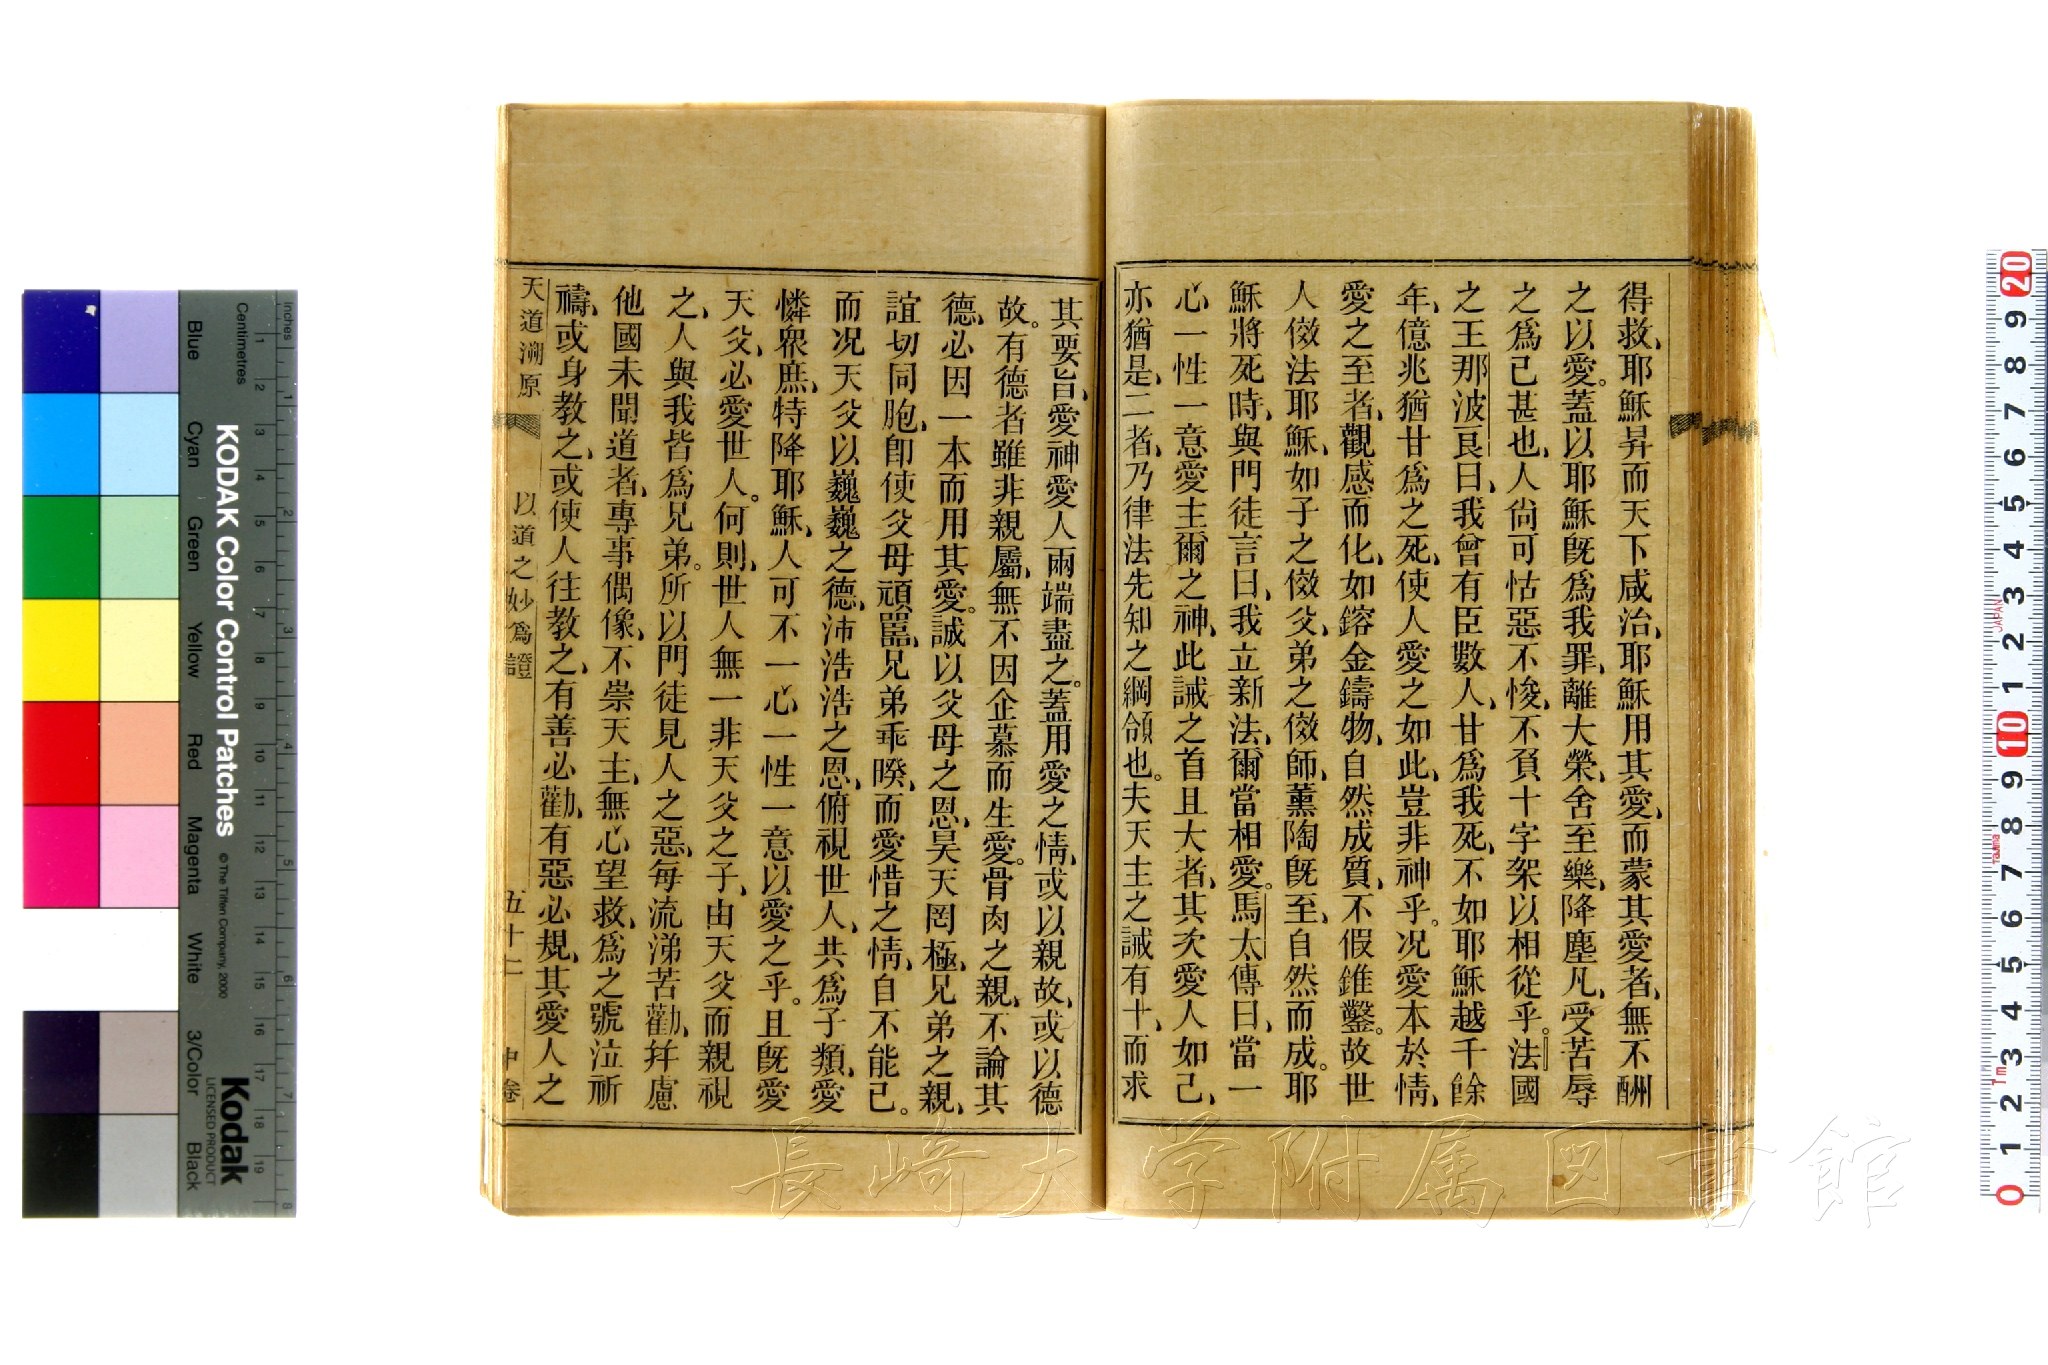 得救、耶穌昇而天下咸治、耶穌用其愛、而蒙其愛者、無不酬
之以愛。蓋以耶穌旣爲我罪、離大榮、舍至樂、降塵凡、受苦辱
之爲已甚也、人尙可怙惡不悛、不負十字架以相從乎。法國
之王那波艮曰、我曾有臣數人、甘爲我死、不如耶穌越千餘
年、億兆猶甘爲之死、使人愛之如此、豈非神乎。况愛本於情、
愛之至者、觀感而化、如鎔金鑄物、自然成質、不假錐鑿。故世
人傚法耶穌、如子之傚父、弟之傚師、薰陶旣至、自然而成。耶
穌將死時、與門徒言曰、我立新法、爾當相愛。馬太傳曰、當一
心一性一意愛主爾之神、此誡之首且大者、其次愛人如己、
亦猶是、二者、乃律法先知之綱領也。夫天主之誡有十、而求
其要旨、愛神愛人兩端盡之。蓋用愛之情、或以親故、或以德
故。有德者雖非親屬、無不因企慕而生愛。骨肉之親、不論其
德、必因一本而用其愛。誠以父母之恩、昊天罔極、兄弟之親、
誼切同胞、卽使父母頑嚚、兄弟乖暌、而愛惜之情、自不能已。
而况天父以巍巍之德、沛浩浩之恩、俯視世人、共爲子類、愛
憐衆庶、特降耶穌、人可不一心一性一意以愛之乎。且旣愛
天父、必愛世人。何則、世人無一非天父之子、由天父而親視
之、人與我皆爲兄弟。所以門徒見人之惡、每流涕苦勸、幷慮
他國未聞道者、專事偶像、不崇天主、無心望救、爲之號泣祈
禱、或身教之、或使人往教之、有善必勸、有惡必規、其愛人之
天道溯原 以道之妙爲證 五十二 中卷
KODAK Color Control Patches
© The Tiffen Company, 2000
Kodak
LICENSED PRODUCT
Inches
Centimetres
Blue
Cyan
Green
Yellow
Red
Magenta
White
3/Color
Black
長崎大学附属図書館